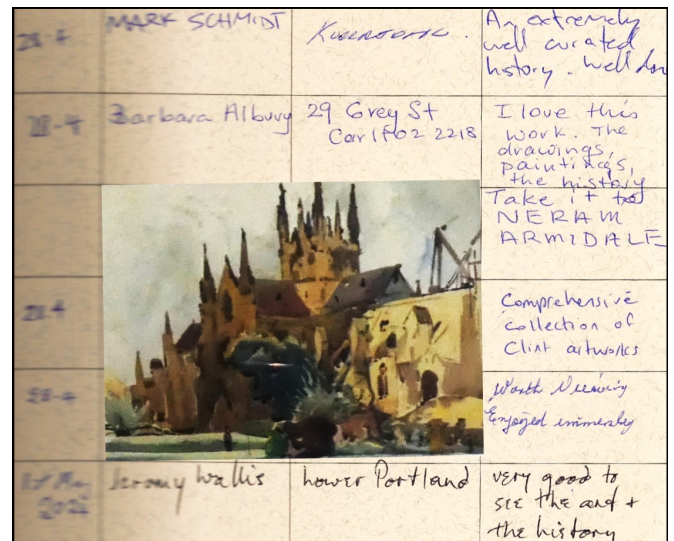 28-4
MARK SCHMIDT
An extremely
well curated
history. Well don
28-4
Barbara Albury
29 Grey St
Carlton 2218
I love this
work. The
drawings,
paintings,
the history
Take it to
NERAM
ARMIDALE
28.4
Comprehensive
collection of
Clint artworks
28-4
Worth Viewing
Enjoyed immensley
1st May
2024
Jeromy Wallis
Lower Portland
very good to
see the and +
the history